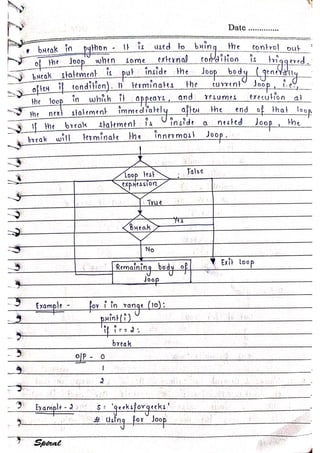 Date ..............
* break in python - It is used to bring the control out
of the loop when some external condition is triggered.
break statement is put inside the loop body (generally
after if condition). It terminates the current loop, i.e.,
the loop in which it appears, and resumes execution at
the next statement immediately after the end of that loop
If the break statement is inside a nested loop, the
break will terminate the innermost loop.
Loop test False
expression
True
Yes
Break
No
Exit loop
Remaining body of
loop
Example - for i in range (10):
print(i)
if i == 2:
break
O/P - 0
1
2
Example - 2 s = 'geeksforgeeks'
# Using for loop
Spiral